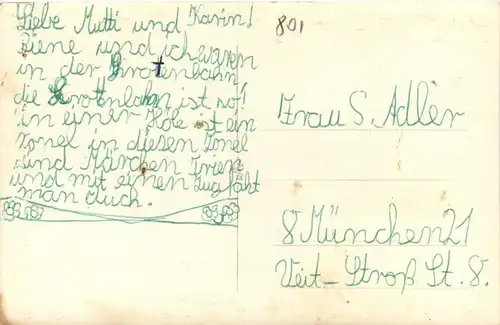 Liebe Mutti und Karin!
Biene und ich waren
in der Grottenbahn
die Grottnbahn ist so!
in einer Höle ist ein
Tonel in diesen Tonel
sind Märchen Frien
und mit einen Zug fäht
man duch.
801
Frau S. Adler
8 München 21
Veit-Stroß St. 8.